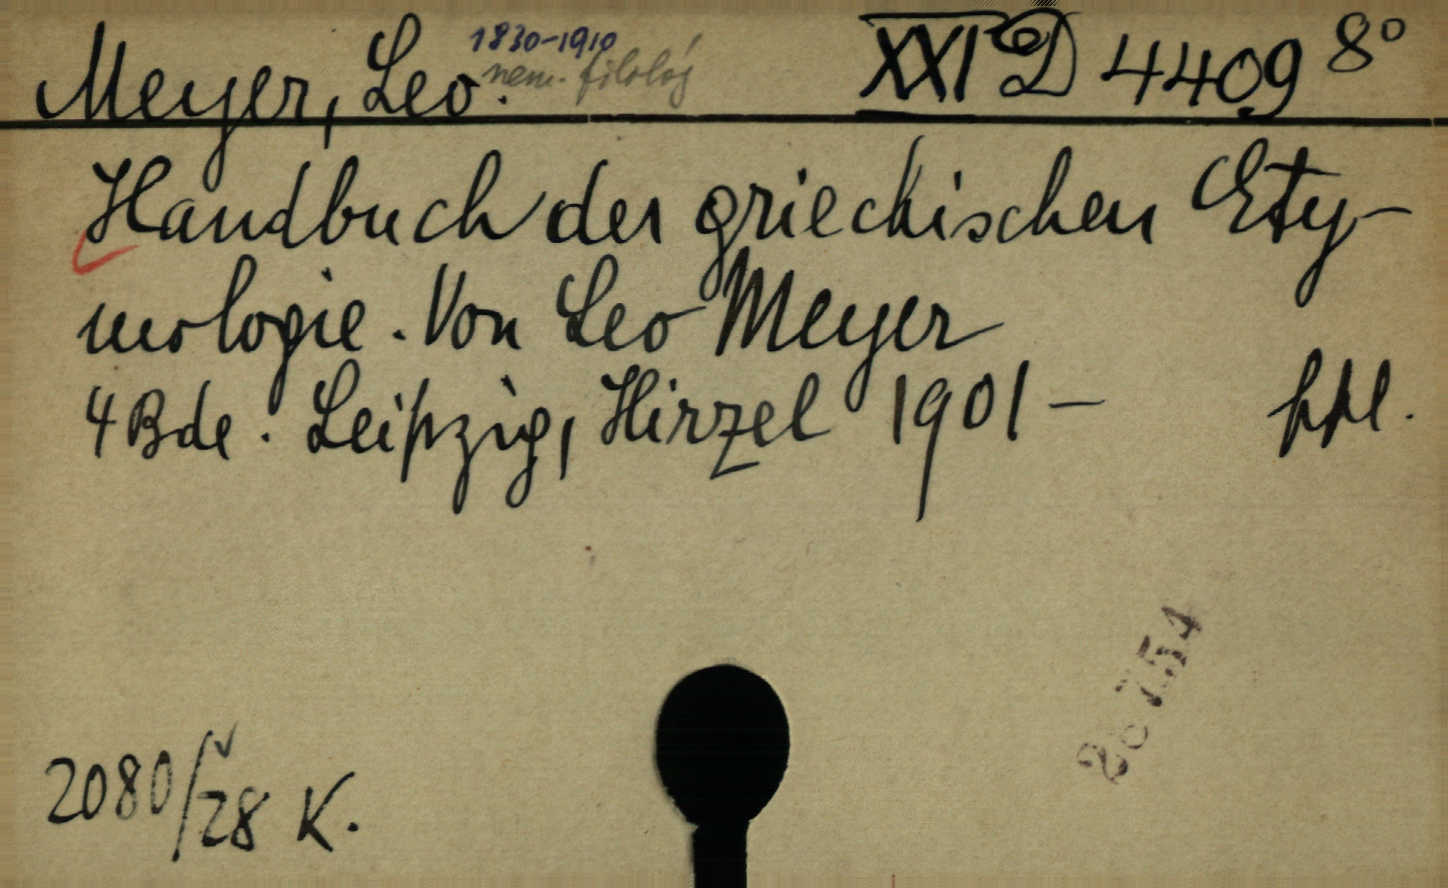 Meyer, Leo. 1830-1910 XXI D 4409 8°
nem. filolog
Handbuch der griechischen Ety-
mologie. Von Leo Meyer
4 Bde. Leipzig, Hirzel 1901 – ppl.
2080/28 K.